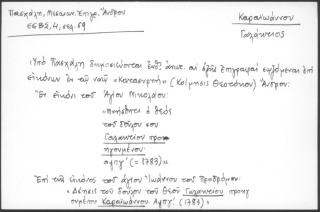 Πασχάλη, Μεσαιων. Ἐπιγρ. Ἄνδρου
ΕΕΒΣ, 4, σελ. 59
Καραϊωάννου
Γαλάκτιος
Ὑπό Πασχάλη δημοσιεύονται ἔνθ. ἀνωτ. αἱ ἑξῆς ἐπιγραφαί εὑρισκόμεναι ἐπί
εἰκόνων ἐν τῷ ναῷ (Κοίμησις Θεοτόκου) Ἄνδρου:
Ἐν εἰκόνι τοῦ Ἁγίου Νικολάου:
"Μνήσθητι ὁ Θεός
τοῦ δούλου σου
Γαλακτίου προη-
γουμένου
αψπγ' (= 1783)".
Ἐπί τῆς εἰκόνος τοῦ ἁγίου Ἰωάννου τοῦ Προδρόμου:
"Δέησις τοῦ δούλου τοῦ Θεοῦ Γαλακτίου προηγ
ουμένου Καραϊωάννου. Αψπγ'. (1783)".